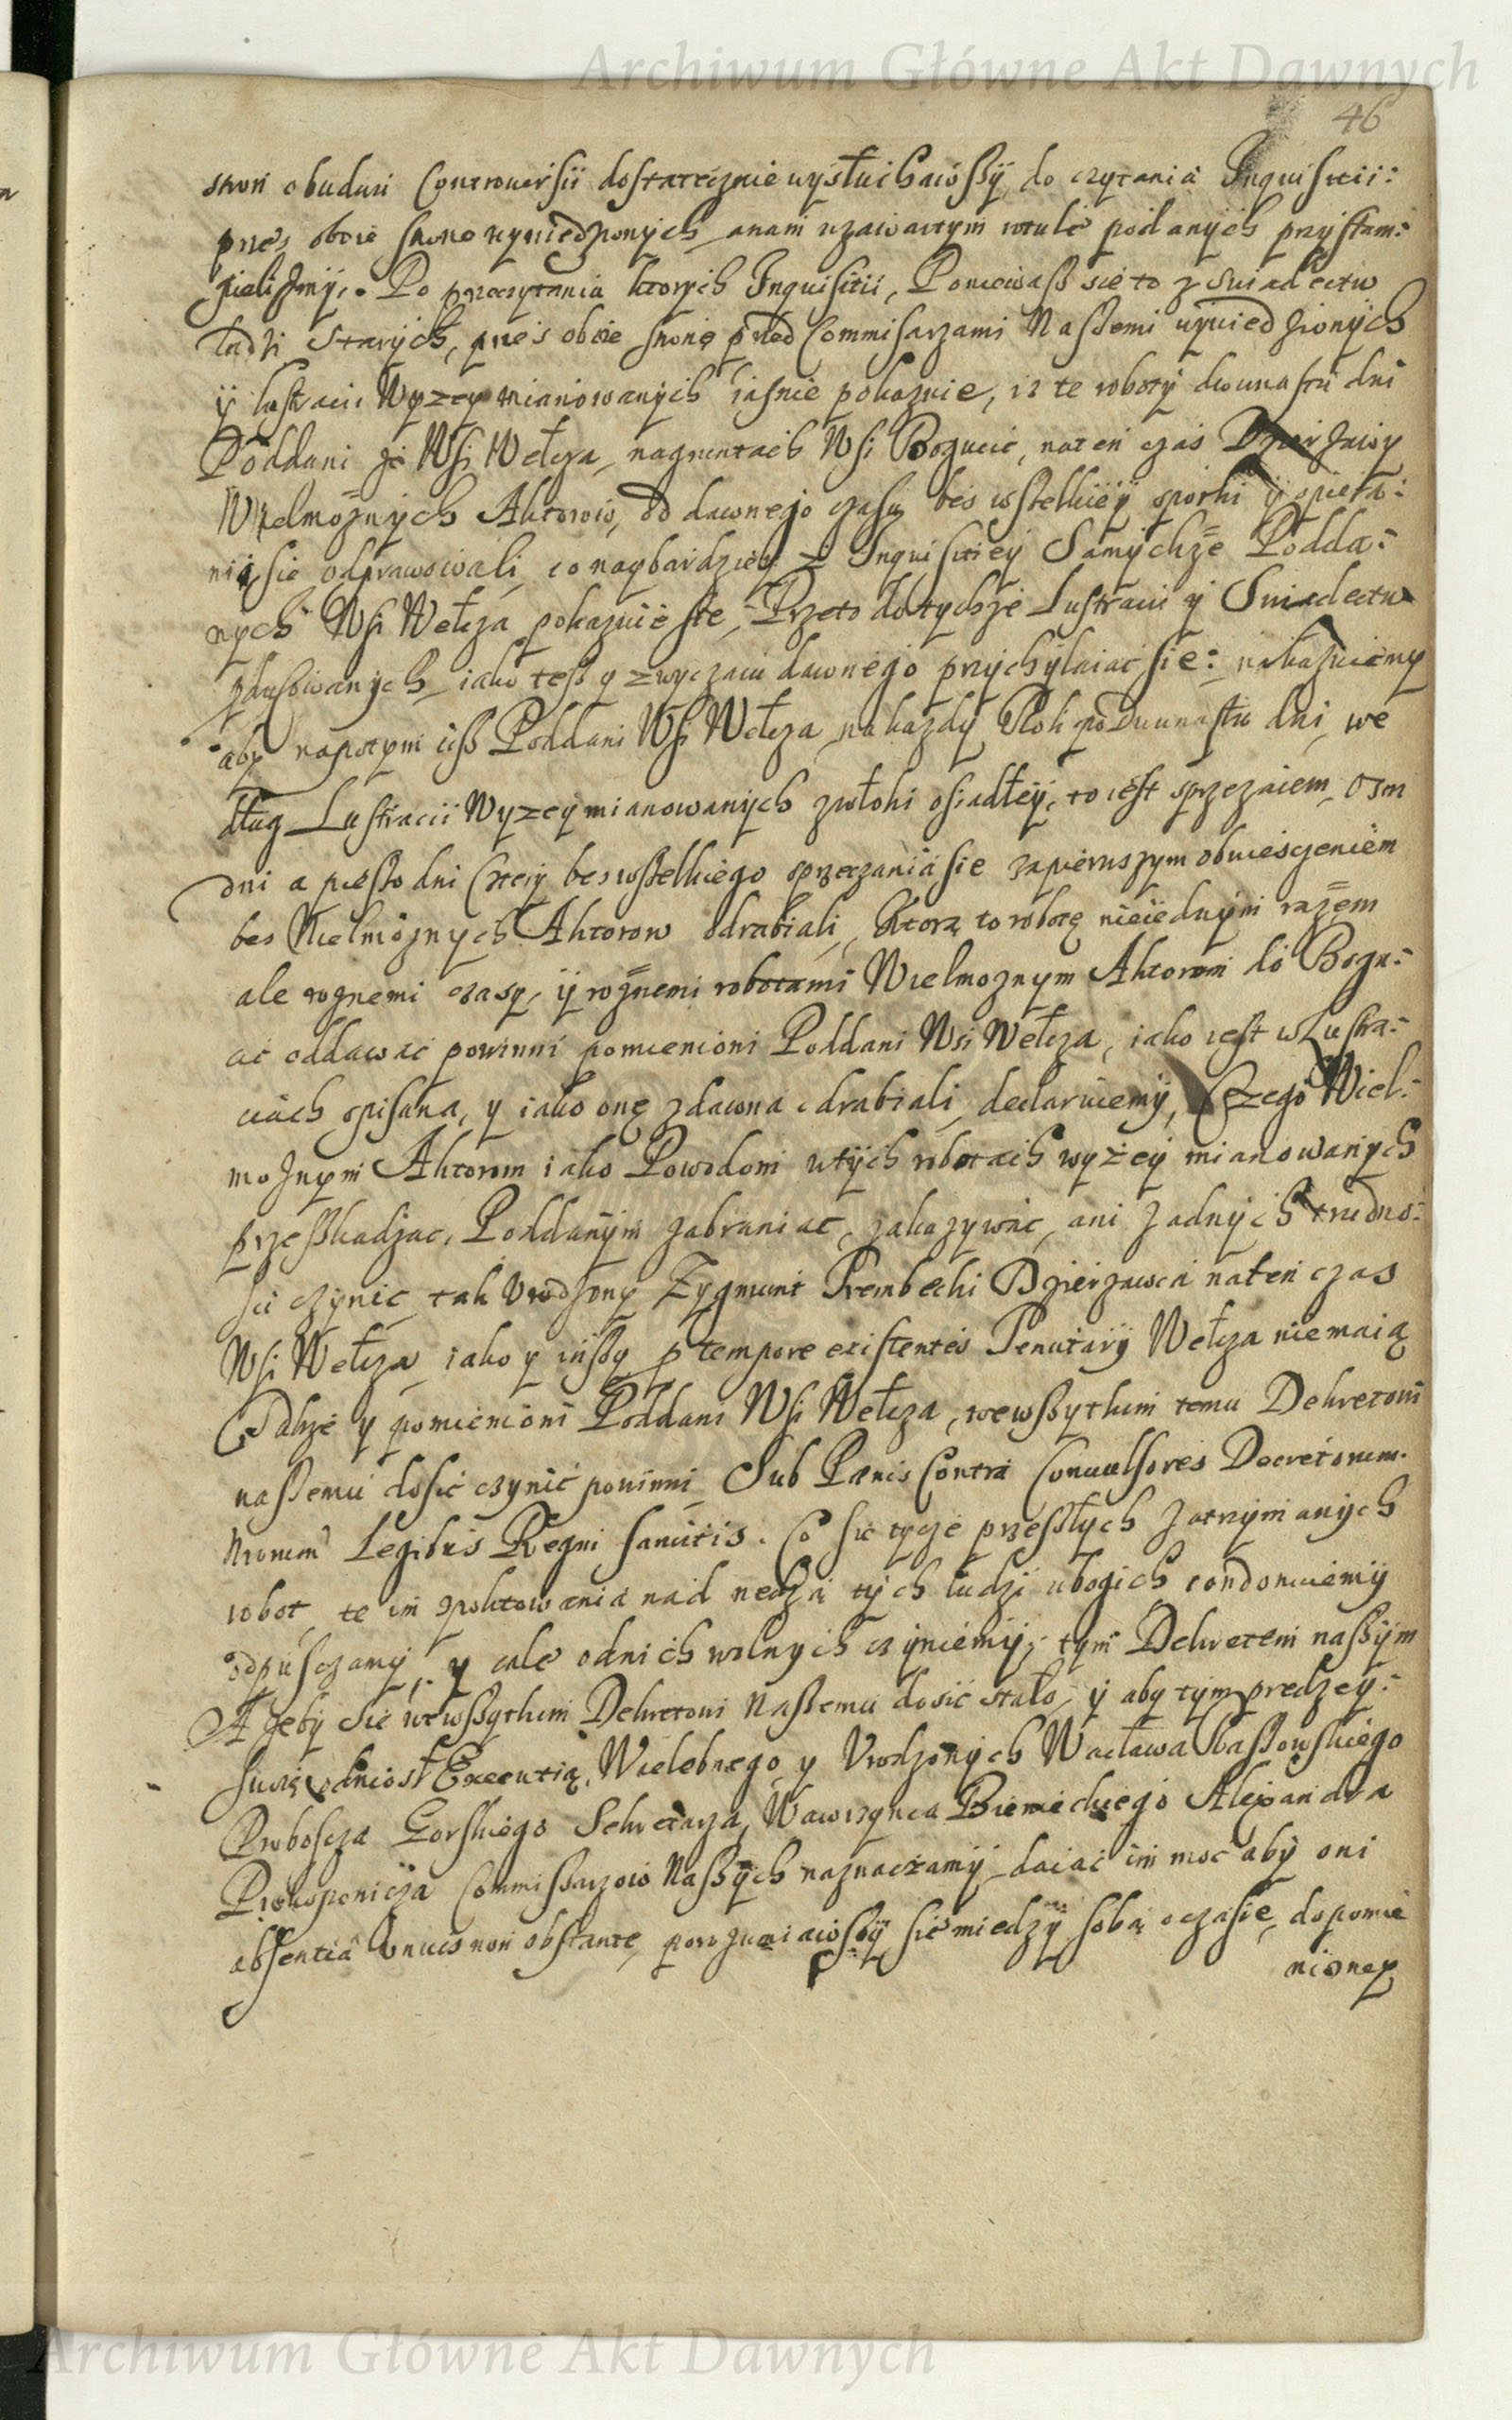 Archiwum Główne Akt Dawnych
46
stron obudwu Controuersii dostatecznie wysłuchawßÿ do czytania Inquisitii:
przes oboie strone wywiedzionych, a nam w zawartym rotule podanÿch przÿstam:
pielismÿ. Po przeczytaniu ktorych Inquisitii, Poniewaß sie to z swiadectw
ludzi starÿch, przes oboie strone przed Commisarzami Naßemi wywiedzionÿch
ÿ lustraciі Wyzey mianowanÿch iasnie pokazuie, iz te robotÿ dwunastu dni
Poddani ze Wsi Wełcza, nagruntach Wsi Bogucic, naten czas Dzierzawy
Wielmoznych Aktorow, od dawnego czasu bes wßelkieÿ sporki ÿ spiera:
nia sie odprawowali, co naybardziey z Inquisitiey Samychze Podda:
nych Wsi Wełcza pokazuie sie, Przeto do tychze Lustracii y Swiadectw
zkassowanych, iako teß y zwyczaiu dawnego przychÿlaiac sie: nakazuiemy
aby napotym ciß Poddani Wsi Wełcza, na kazdy Rok po Dwunastu dni, we
dług Lustracii Wyzeÿ mianowanych z włoki osiadłeÿ, to iest sprzezaiem Osm
dni a pießo dni Czterÿ bes wßelkiego sprzeczania sie za pierwszym obwiesczeniem
bes Wielmoznych Aktorow odrabiali, Ktorą to robotę nieiednÿm razem
ale roznemi czasy, ÿ roznemi robotami Wielmoznym Aktorom do Bogu:
cic oddawać powinni pomienioni Poddani Wsi Wełcza, iako iest w Lustra:
ciach opisana, y iako onę zdawna odrabiali, declaruiemÿ, Czego Wiel:
moznym Aktorom iako Powodom w tÿch robotach wyżeÿ mianowanych
przeßkadzac, Poddanÿm zabraniac, zakazywac, ani zadnÿch trudno:
sci czynic, tak Vrodzony Zygmunt Prembecki Dzierzawca naten czas
Wsi Wełcza, iako y inßy p tempore existentes Tenutarÿ Wełcza niemaią
Także y pomienioni Poddani Wsi Wełcza, wewßytkim temu Dekretowi
naßemu dosić czynić powinni Sub Pænis Contra Convulsores Decretorum
Nrorum Legibus Regni sancitis. Co sie tycze przeßłych zatrzymanÿch
robot, te im z politowania nad nedzą tÿch ludzi ubogich condonuiemÿ
odpusczamÿ, y cale odnich wolnych czÿniemÿ, tym Dekretem naßÿm
A zeby sie wewßytkim Dekretowi Naßemu dosić stało, ÿ aby tym predzeÿ:
swoią odniosł Executią, Wielebnego y Vrodzonÿch Wacława Saßowskiego
Proboscza Gorskiego Sekretarza, Wawrzynca Bienieckiego Alexandra
Prokopowicza Commißarzow Naßÿch naznaczamÿ, daiac im moc aby oni
absentia Vnius non obstante, porozumiawßÿ sie miedzÿ sobą o czasie, dopomie
nioney
Archiwum Główne Akt Dawnych